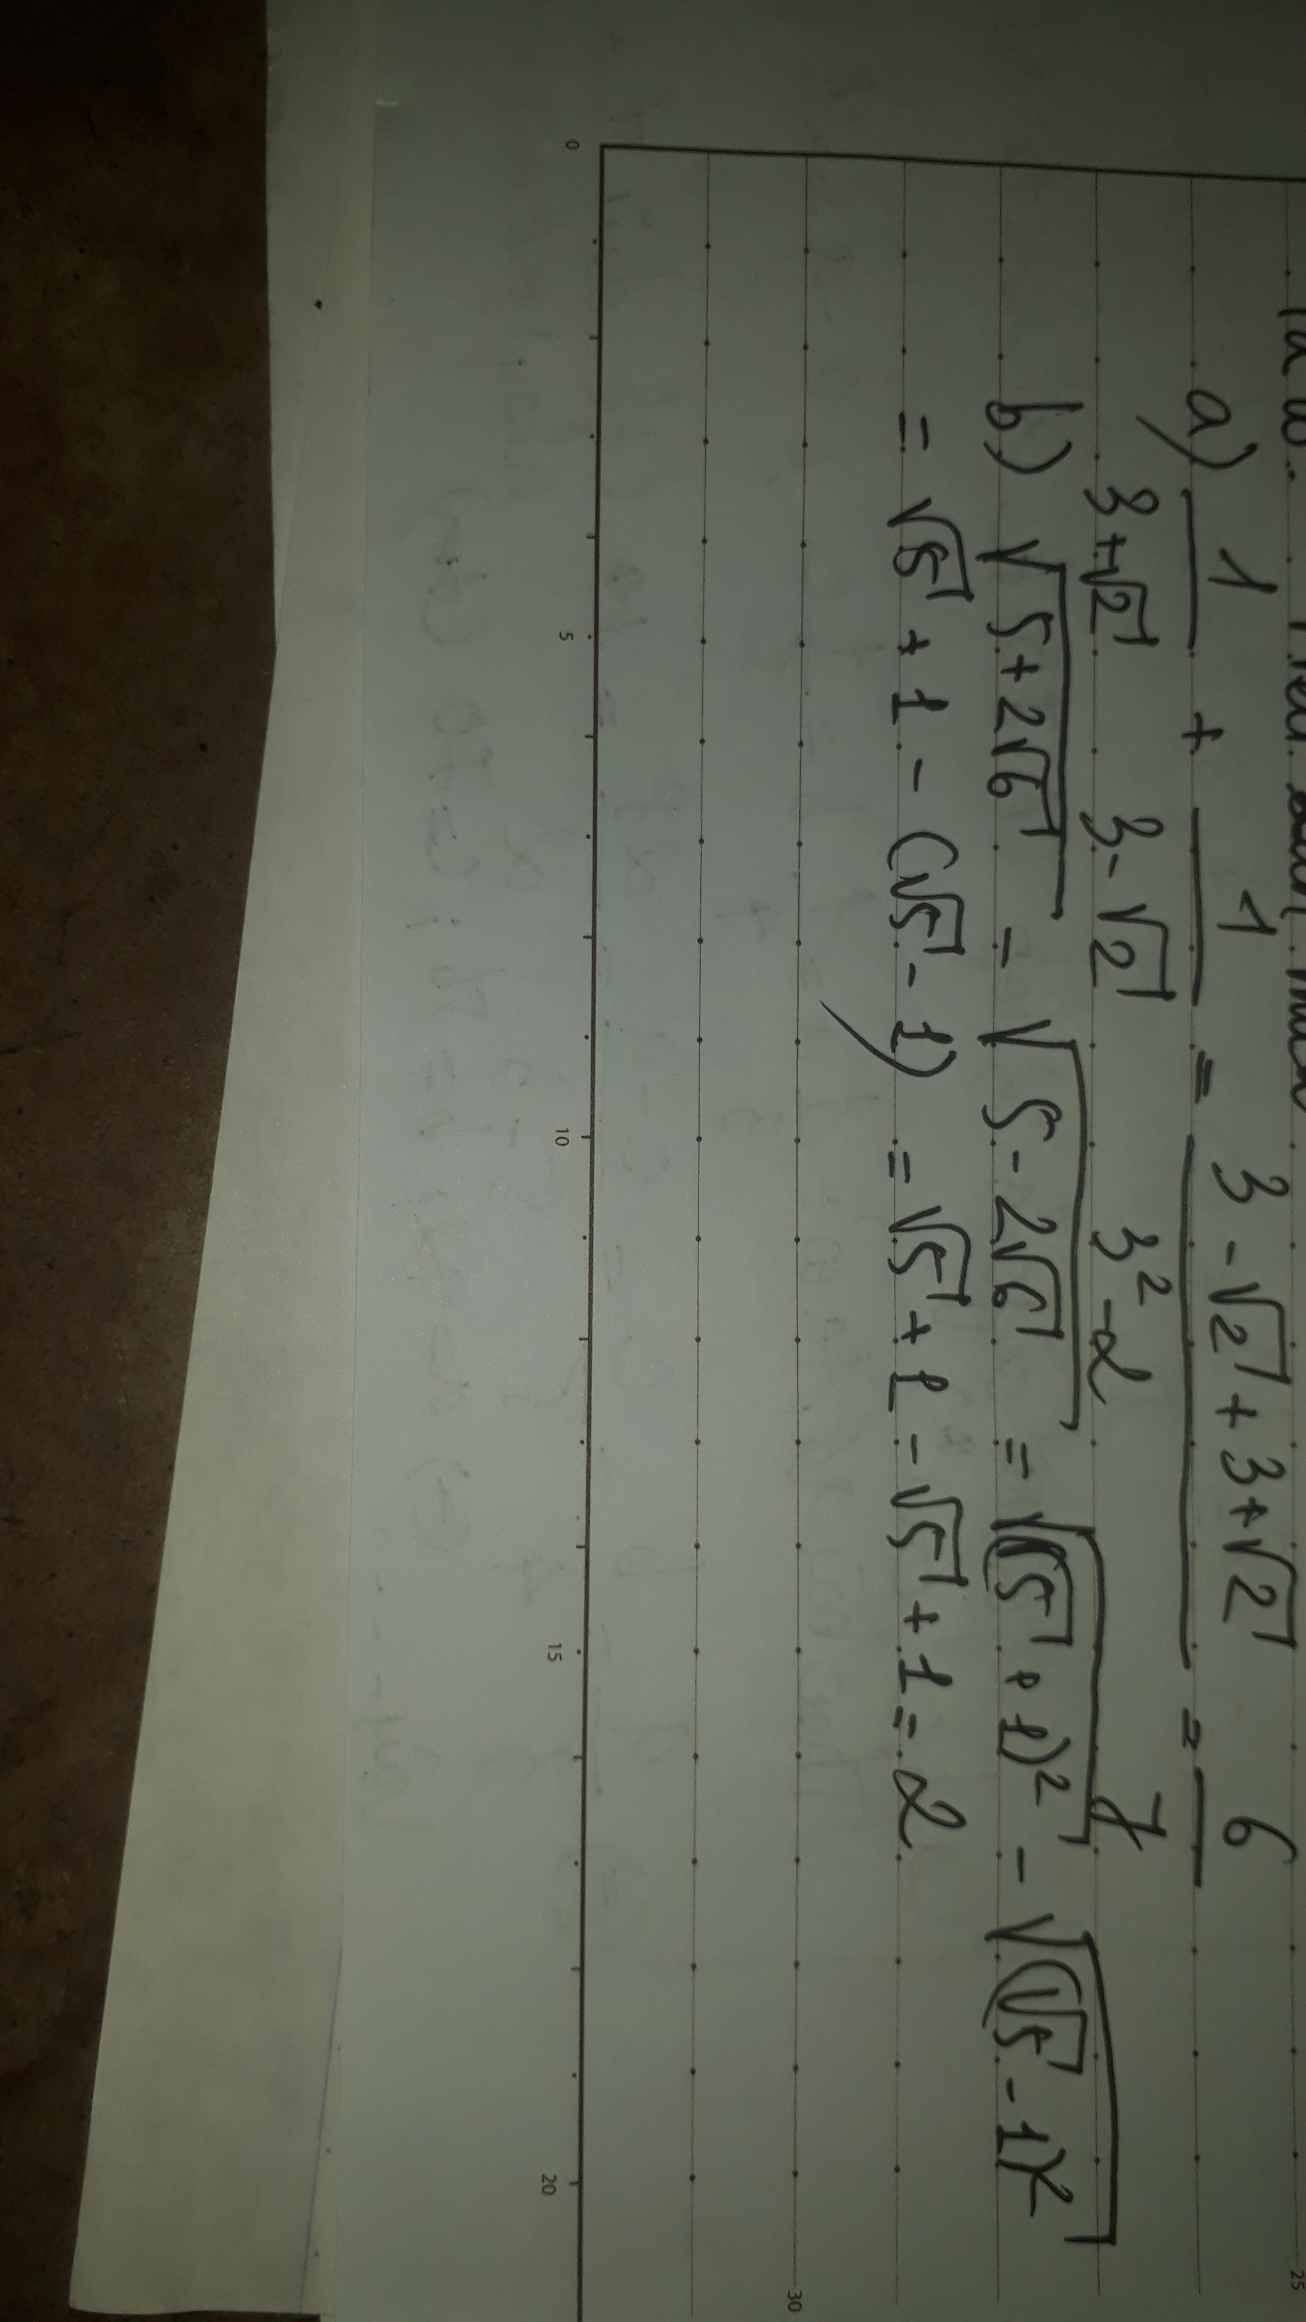 a) 1/(3+√2) + 1/(3-√2) = (3-√2+3+√2)/(3²-2) = 6/7
b) √(5+2√6) - √(5-2√6) = √((√5+1)²) - √((√5-1)²)
= √5+1-(√5-1) = √5+1-√5+1=2
0 5 10 15 20
25
30